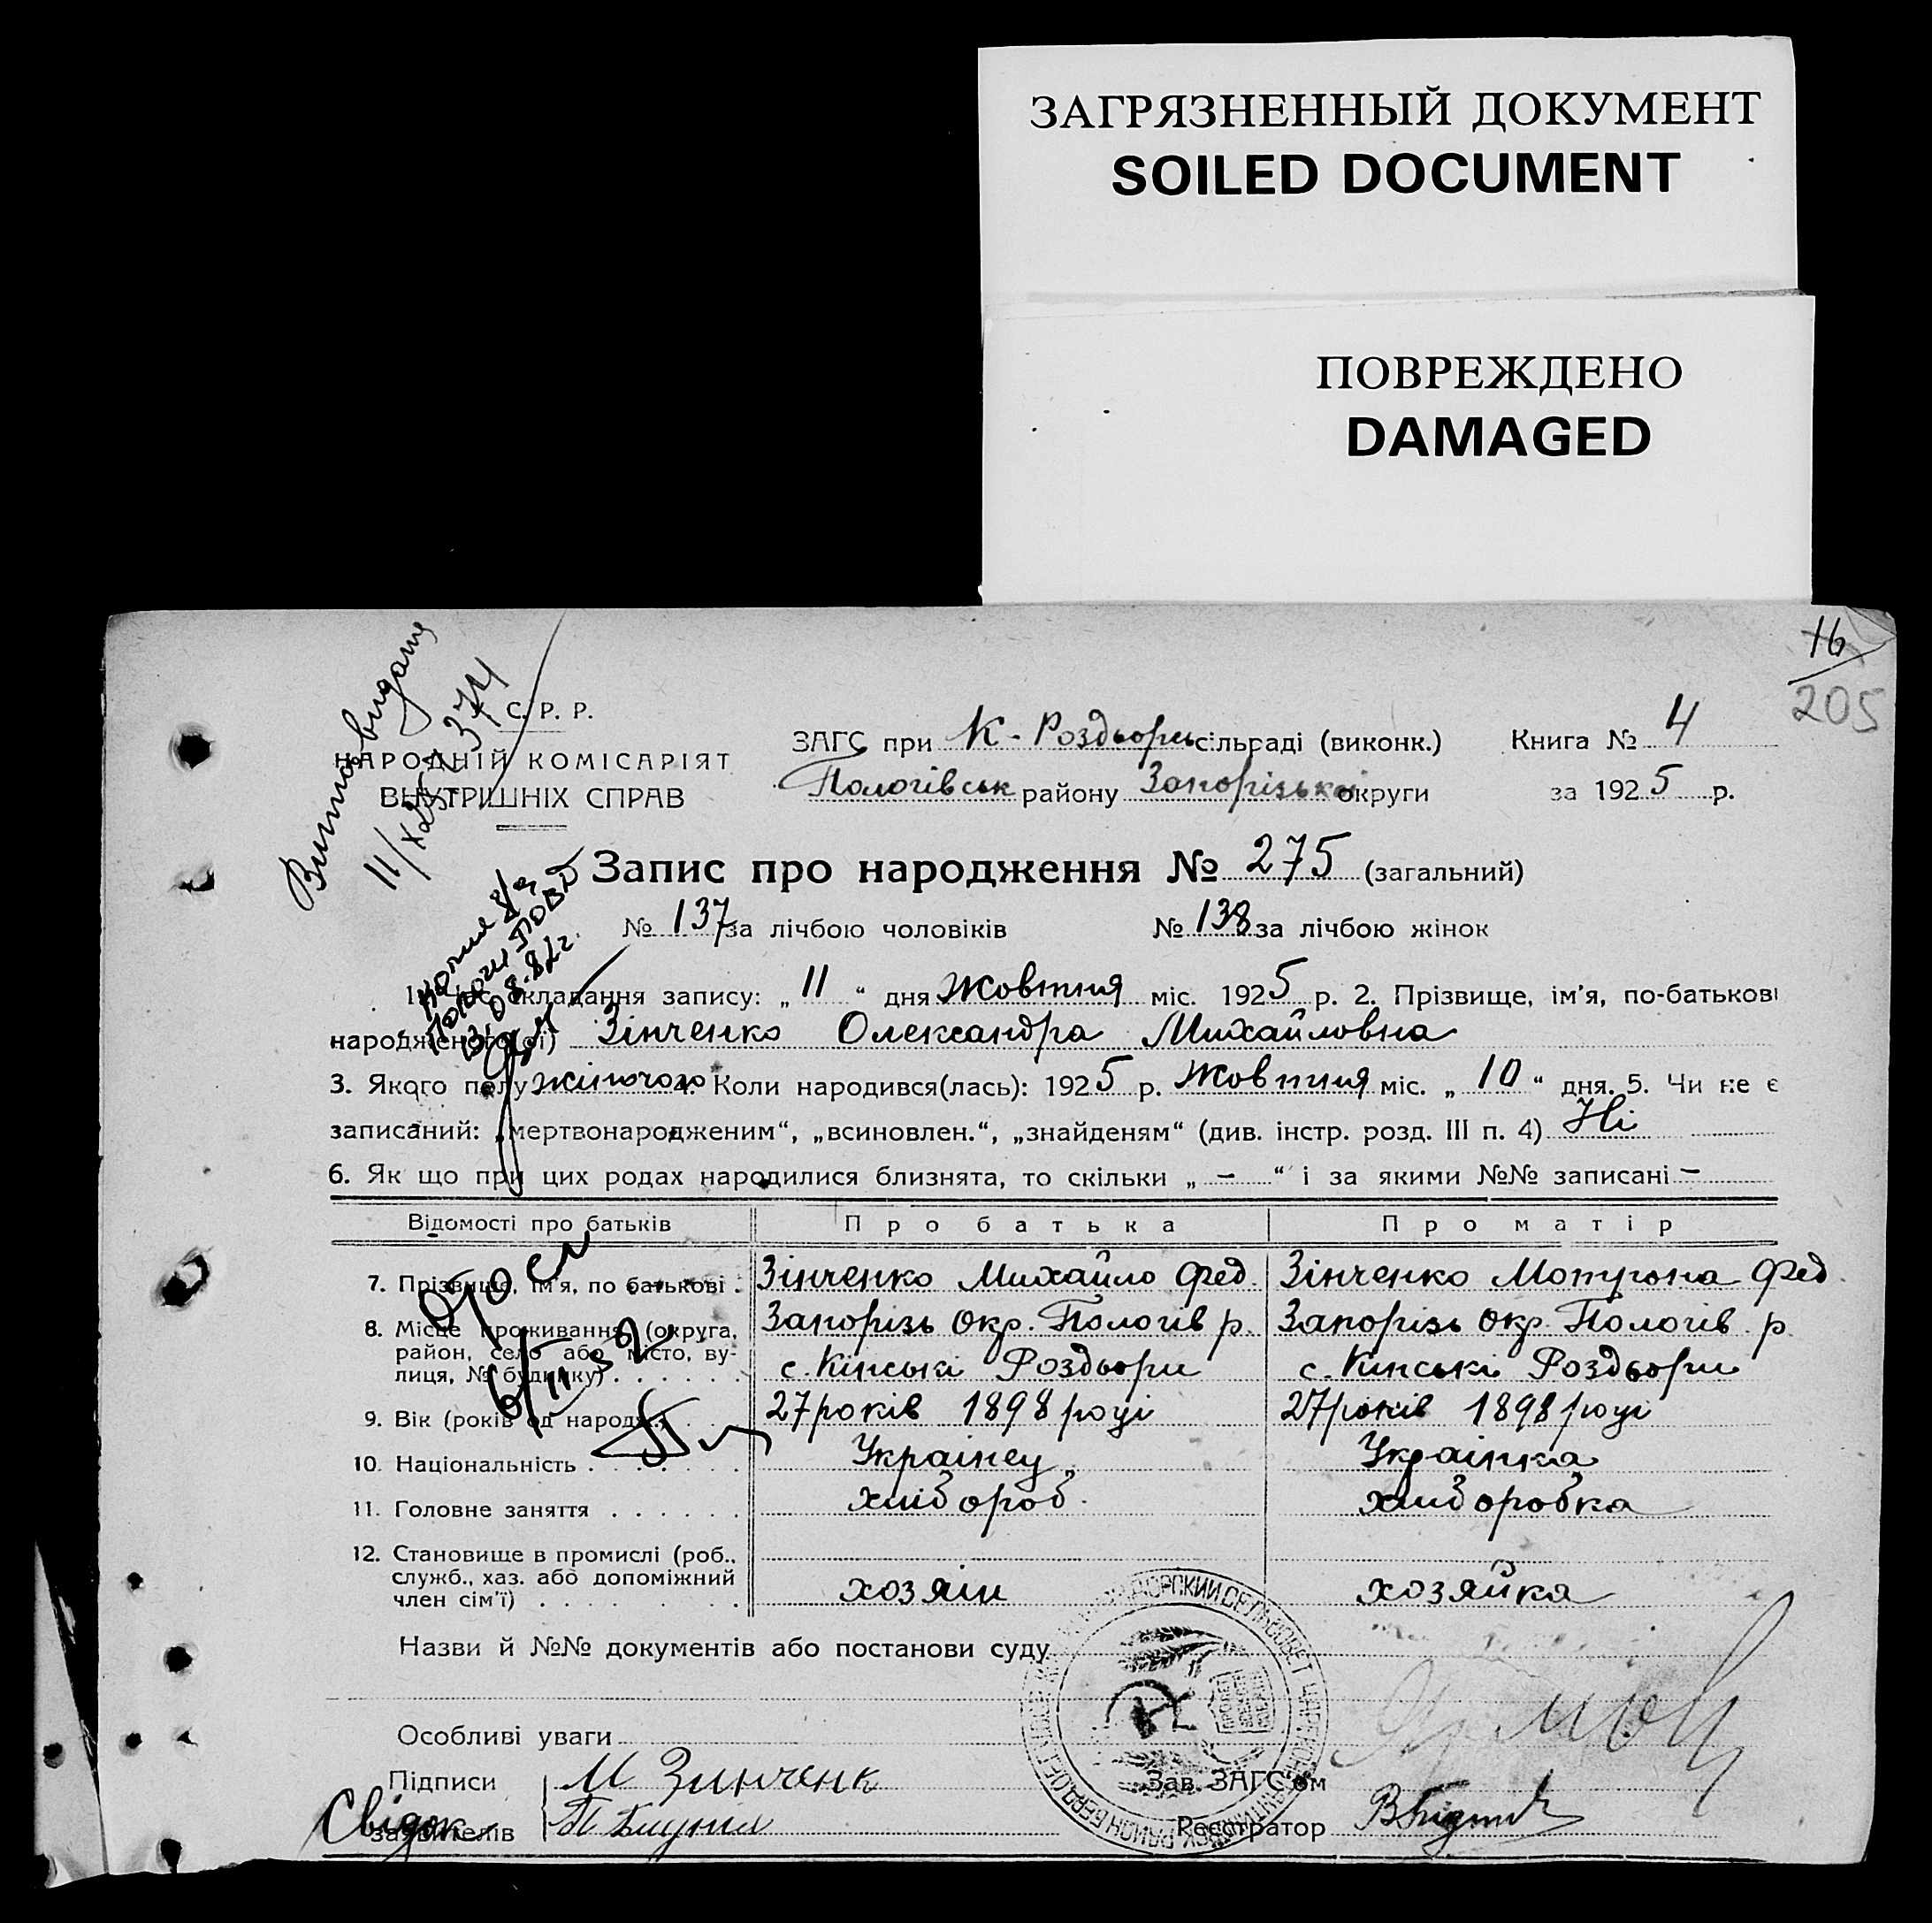 ЗАГРЯЗНЕННЫЙ ДОКУМЕНТ
SOILED DOCUMENT
ПОВРЕЖДЕНО
DAMAGED
16
205
Витяг видано
11/X 25 374
С. Р. Р.
НАРОДНІЙ КОМІСАРІЯТ
ВНУТРІШНІХ СПРАВ
ЗАГС при К-Роздори сільраді (виконк.) Книга № 4
Пологівськ району Запорізька округи за 1925 р.
Запис про народження № 275 (загальний)
№ 137 за лічбою чоловіків № 138 за лічбою жінок
складання запису: „11“ дня Жовтня міс. 1925 р. 2. Прізвище, ім'я, по-батькові
народженого(ої) Зінченко Олександра Михайловна
3. Якого полу жіночого 4. Коли народився(лась): 1925 р. Жовтня міс. „10“ дня. 5. Чи не є
записаний: „мертвонародженим“, „всиновлен.“, „знайденям“ (див. інстр. розд. III п. 4) Ні
6. Як що при цих родах народилися близнята, то скільки „ – “ і за якими №№ записані –
Відомості про батьків Про батька Про матір
7. Прізвище, ім'я, по батькові . Зінченко Михайло Фед. Зінченко Мотрона Фед.
8. Місце проживання (округа, район, село або місто, вулиця, № будинку) . . . . . . Запорізь Окр. Пологів р. с. Кінські Роздори Запорізь Окр. Пологів. р. с. Кінські Роздори
9. Вік (років од народж.) 27 років 1898 році 27 років 1898 році
10. Національність . . . . . . Українец Українка
11. Головне заняття . . . . . . хлібороб. хліборобка
12. Становище в промислі (роб., служб., хаз. або допоміжний член сім'ї) . . . . . . хозяін хозяйка
Назви й №№ документів або постанови суду
Особливі уваги
Підписи М Зинченк Зав. ЗАГС'ом
Свідок заявителів Реєстратор